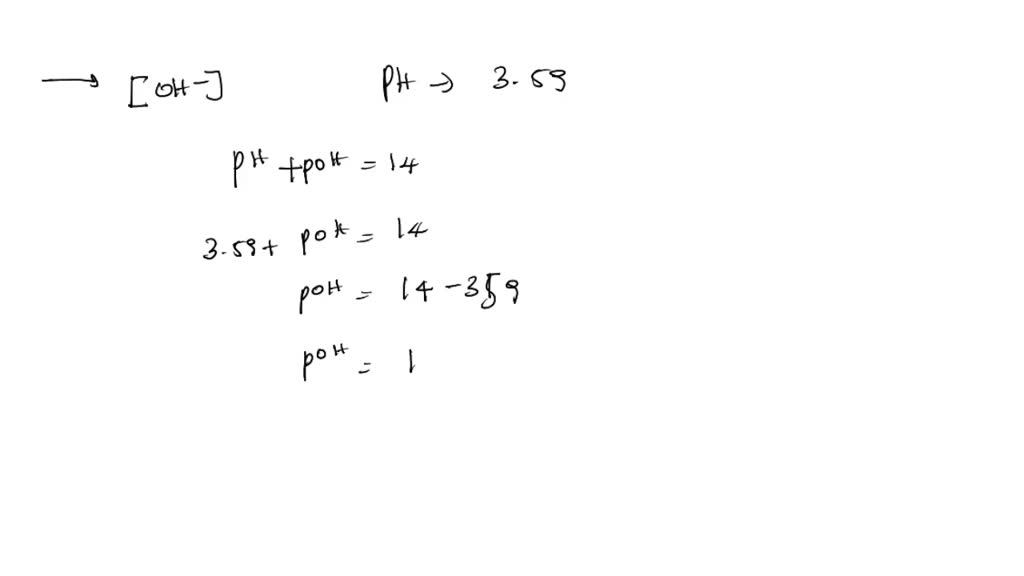 → [OH-] PH → 3.59
pH + pOH = 14
3.59 + pOH = 14
pOH = 14 - 359
pOH = 1